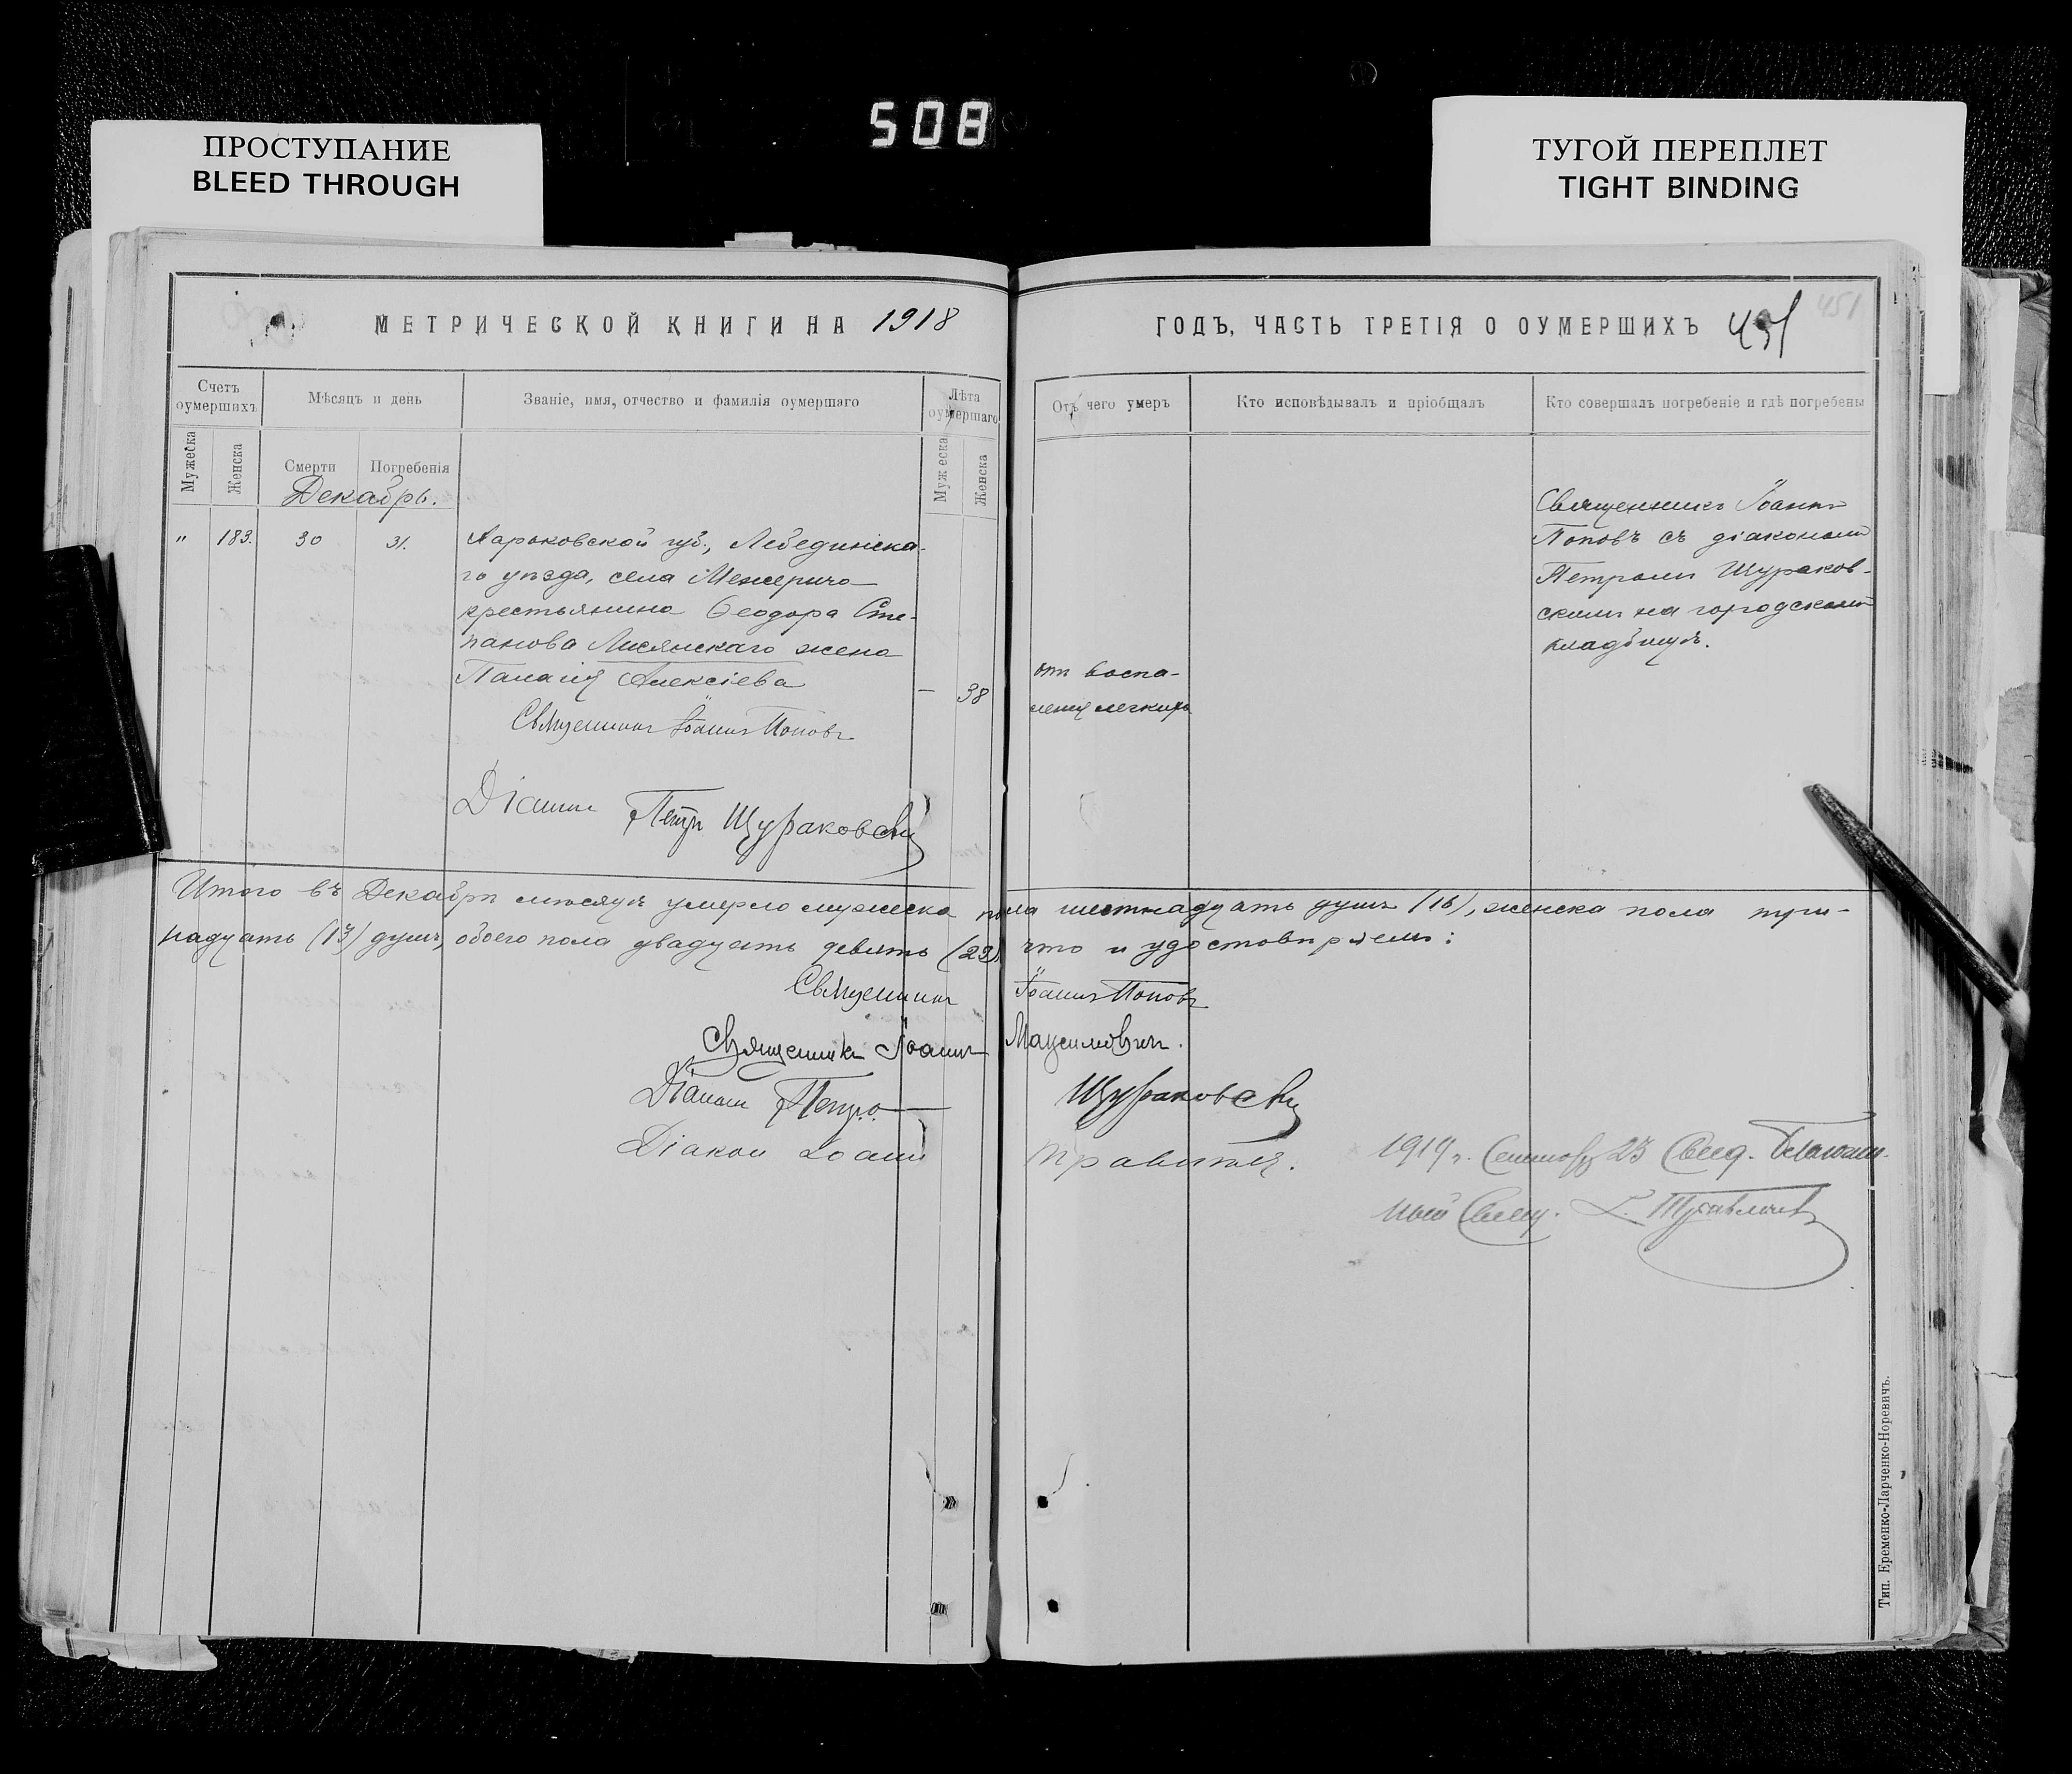 508
ПРОСТУПАНИЕ
BLEED THROUGH
ТУГОЙ ПЕРЕПЛЕТ
TIGHT BINDING
МЕТРИЧЕСКОЙ КНИГИ НА 1918
Счетъ оумершихъ
Мѣсяцъ и день
Званіе, имя, отчество и фамилія оумершаго
Лѣта оумершаго
Мужеска
Женска
Смерти
Погребенія
Мужеска
Женска
Декабрь.
" 183. 30 31.
Харьковской губ., Лебединска-
го уѣзда, села Межерича
крестьянина Ѳеодора Сте-
панова Лисянскаго жена
Пелагія Алексіева
— 38
Священникъ Іоаннъ Поповъ
Діаконъ Петръ Щураковскій
ГОДЪ, ЧАСТЬ ТРЕТІЯ О ОУМЕРШИХЪ 451
451
Отъ чего умеръ
Кто исповѣдывалъ и пріобщалъ
Кто совершалъ погребеніе и гдѣ погребены
от воспа-
ленія легкихъ
Священникъ Іоаннъ
Поповъ съ діакономъ
Петромъ Щураков-
скимъ на городскомъ
кладбищѣ.
Итого въ Декабрѣ мѣсяцѣ умерло мужеска пола шестнадцать душъ (16), женска пола три-
надцать (13) душъ, обоего пола двадцать девять (29) что и удостовѣряемъ:
Священникъ Іоаннъ Поповъ
Священникъ Іоаннъ Максимовичъ.
Діаконъ Петръ Щураковскій
Діакон Іоанн
1919 г. Сентября 23 Свид. Благочин-
ный Свящ.
Тип. Еременко-Ларченко-Норевичъ.